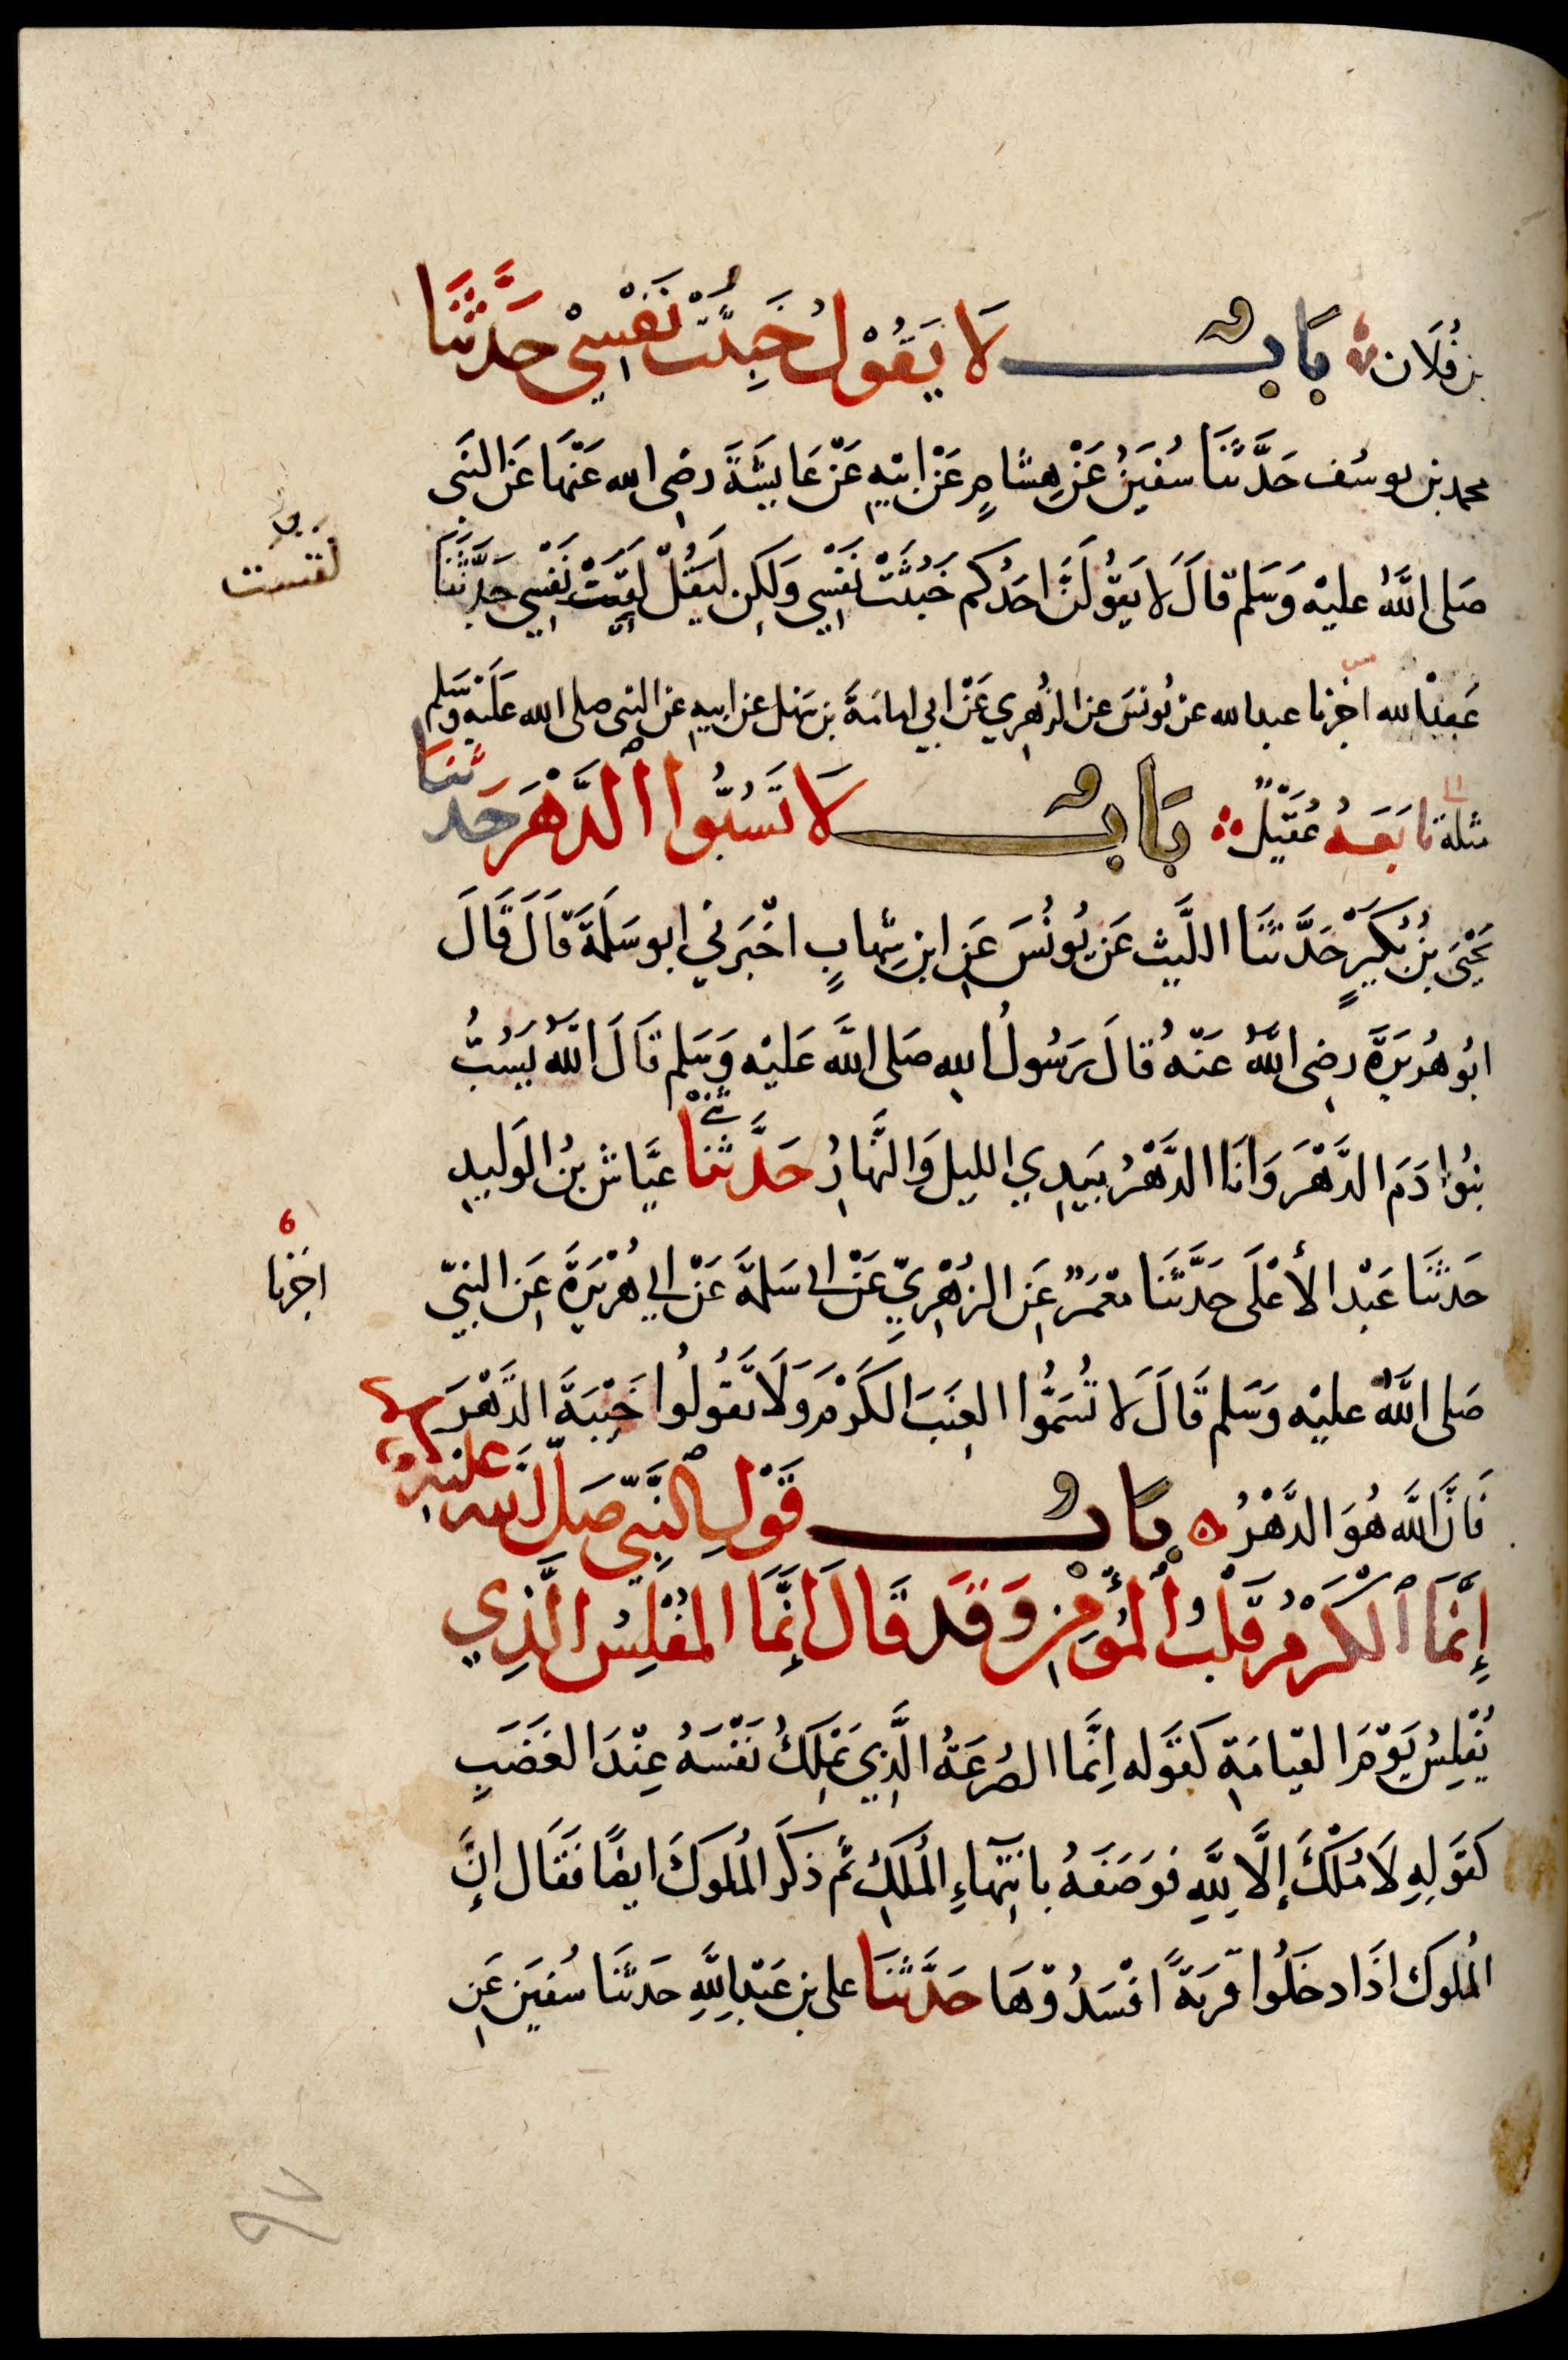 بن فُلَان باب لَا يَقُوْلُ خَبُثَتْ نَفْسِيْ حَدَّثَنَا
محمد بن يوسُف حَدَّثَنَا سُفيَنُ عَنْ هِشامٍ عَنْ ابيهِ عَنْ عَايشَةَ رضي الله عَنْهَا عَنِ النبي
صَلى اللَّهُ عليْه وَسَلم قالَ لَا يَقُولَنَّ احَدُكم خَبُثَتْ نَفْسِي وَلَكِن لِيَقُلْ لَقِسَتْ نَفْسِي حَدَّثَنَا
لقست
عبدالله اخبرنا عبدالله عن يُونسَ عن الزُهري عَنْ ابي امامَةَ بن سَهل عن ابيهِ عن النبي صلى الله عَليْه وَسَلم
مثلهُ تابَعَهُ عُقَيْلٌ باب لَا تَسُبُّوا الدَّهْرَ حَدثنا
يَحْيَى بنُ بُكَيْرٍ حَدَّثَنَا الليث عَن يُونُسَ عَنِ ابنِ شِهابٍ اخْبَرَني ابو سَلَمَةَ قَالَ قَالَ
ابُو هُرَيرَةَ رضي اللهُ عَنْهُ قالَ رَسُولُ اللهِ صَلى اللَّه عَليْه وَسَلم قَالَ اللَّهُ يَسُبُّ
بنُوا دَمَ الدَّهْرَ وَانَا الدَّهْرُ بيَدِي الليل وَالنَّهارُ حَدَّثَنَا عيَّاش بنُ الوَليدِ
حَدثنَا عَبْد الأعْلَى حَدَّثَنَا مَعْمَرٌ عَنِ الزهْرِيِّ عَنْ ابي سَلمةَ عَنْ ابي هُرَيرَةَ عَنِ النبيّ
اخبرنا
صَلى اللَّهُ عليْه وَسَلم قَالَ لَا تُسَمُّوا العِنَبَ الكَرْمَ وَلَا تَقُولُوا خَيْبَةَ الدَّهْرَ
فَانَّ اللَّه هُوَ الدَّهْرُ ه باب قَوْلِ النَّبِيِّ صَلى اللَّه عليْهِ وسلم
إِنَّمَا الكَرْمُ قَلْبُ المُؤْمِنِ وَقَد قَالَ إِنَّمَا المُفْلِسُ الَّذِي
يُفْلِسُ يَوْمَ القيامَةِ كقَوله اِنَّما الصُرعَةُ الَّذِي يَمْلِكُ نَفْسَهُ عِنْدَ الغَضَبِ
كقَولِهِ لَا مُلْكَ إِلَّا لِلَّهِ فوَصَفَهُ بانتِهَاءِ المُلكِ ثم ذَكَر المُلوكَ ايضًا فَقَال اِنَّ
المُلوكَ اذَا دخَلُوا قَريَةً افْسَدُوْهَا حَدَّثَنَا علي بن عَبْدِ اللَّهِ حَدثَنَا سُفيَن عَنِ
٩٧